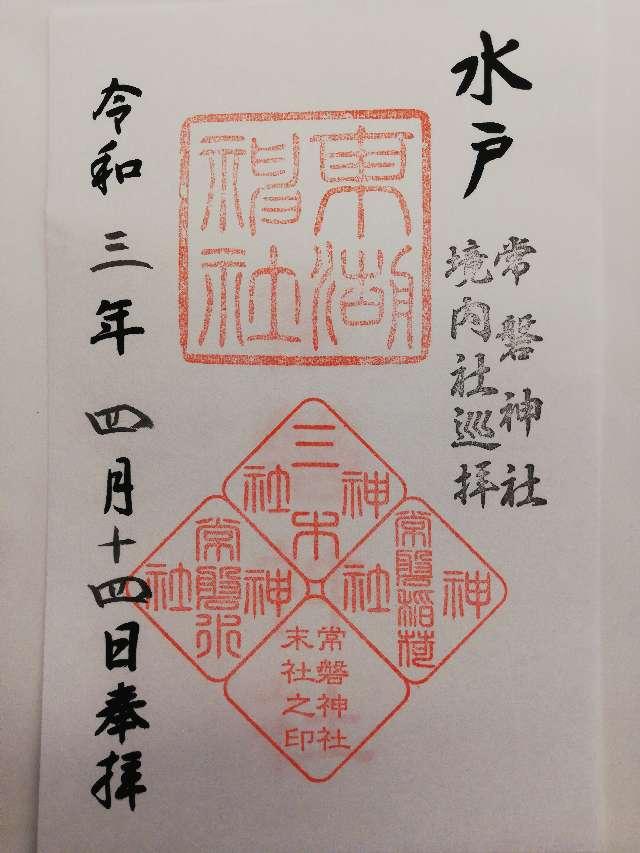 水戸
常磐神社
境内社巡拝
東湖
神社
三木
神社
常磐稲荷
神社
常磐水
神社
常磐神社
末社之印
令和三年四月十四日奉拝